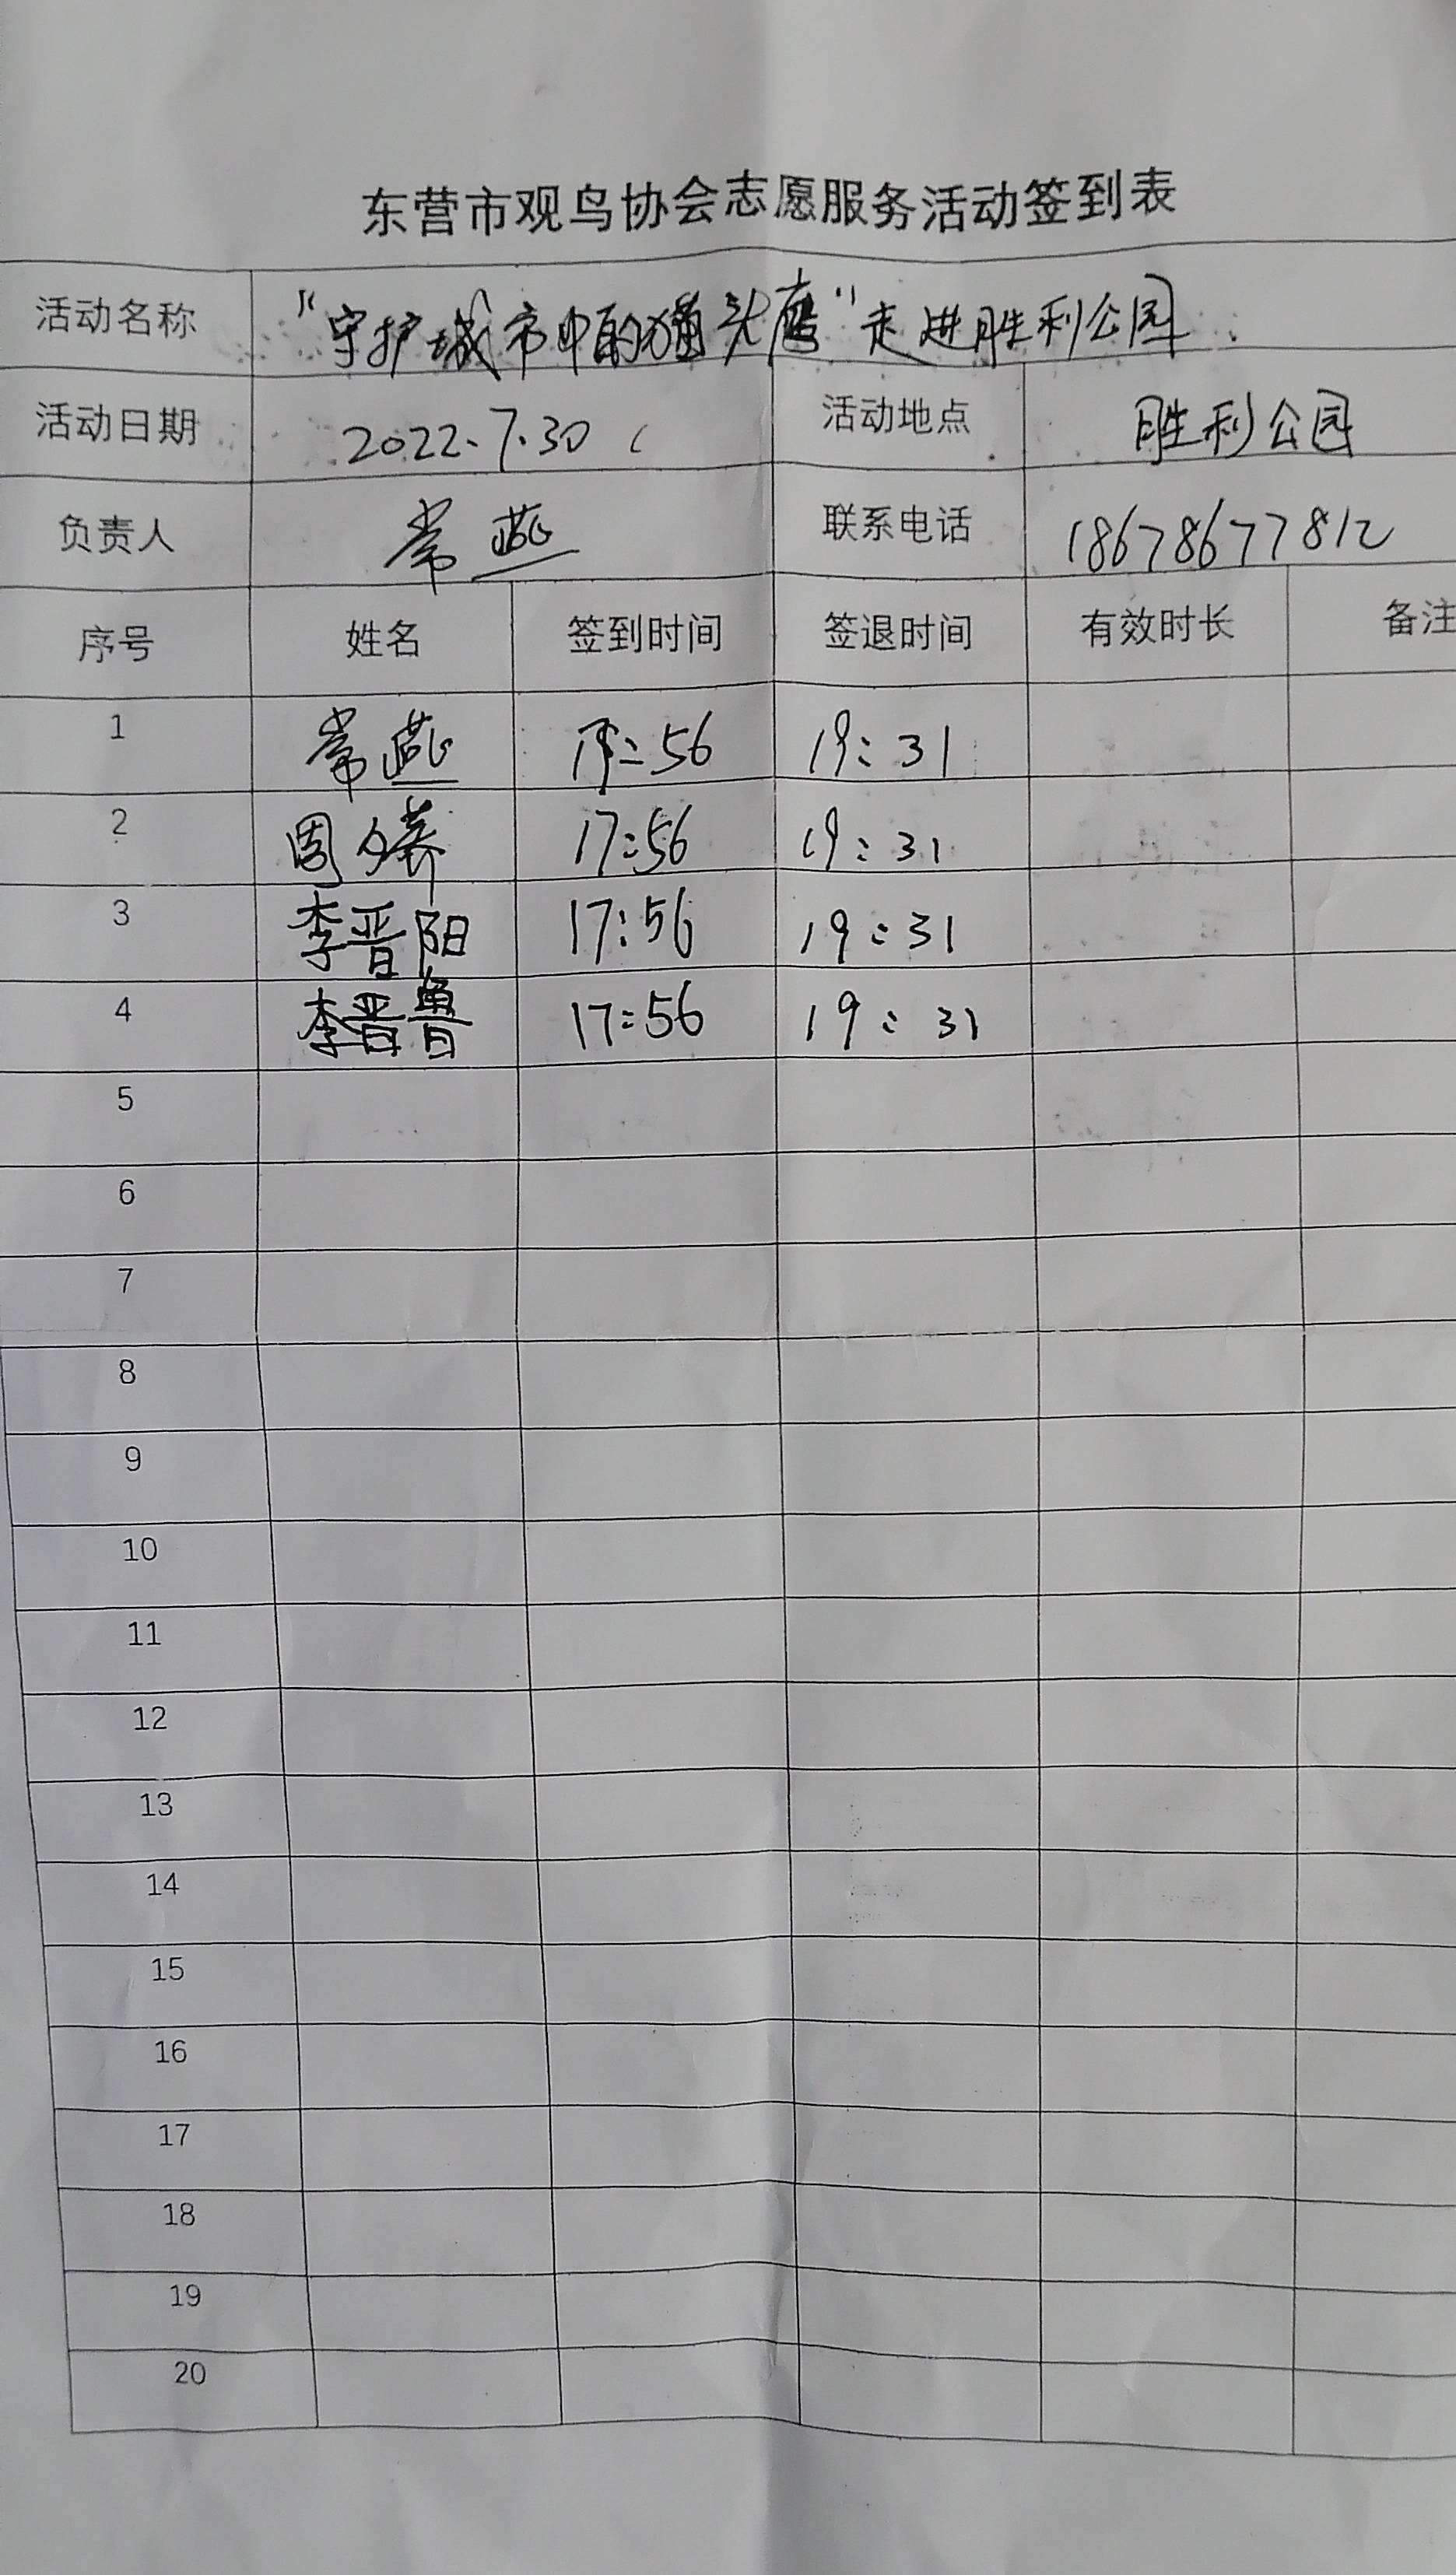 东营市观鸟协会志愿服务活动签到表
活动名称 "守护城市中的猫头鹰"走进胜利公园
活动日期 2022.7.30 活动地点 胜利公园
负责人 常燕 联系电话 18678677812
序号 姓名 签到时间 签退时间 有效时长 备注
1 常燕 17:56 19:31
2 周 17:56 19:31
3 李晋阳 17:56 19:31
4 李晋鲁 17:56 19:31
5
6
7
8
9
10
11
12
13
14
15
16
17
18
19
20